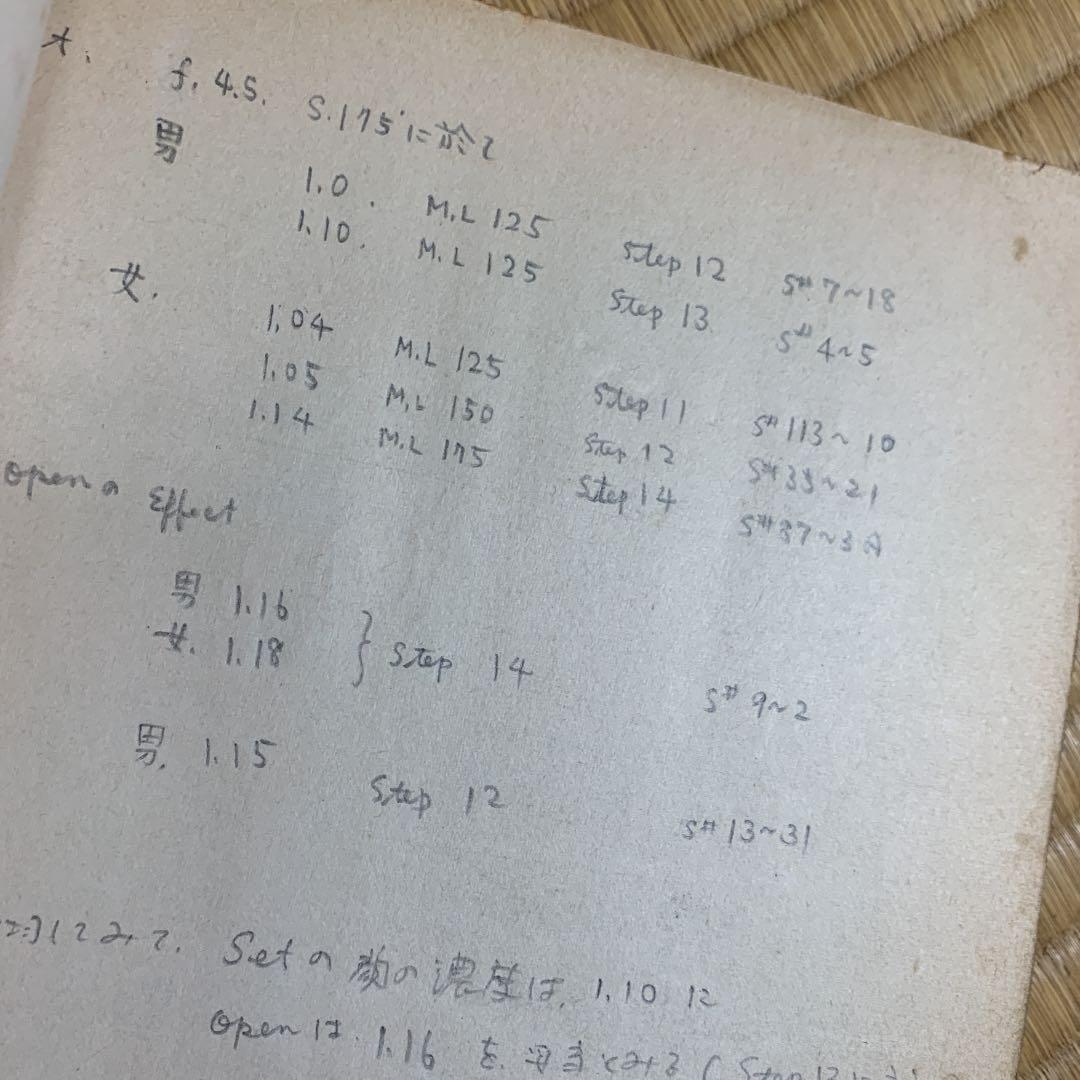 f. 4.5. S.175に於て
男
1.0. M.L 125 Step 12 S# 7~18
1.10. M.L 125 Step 13 S# 4~5
女.
1.04 M.L 125 Step 11 S# 113~10
1.05 M.L 150 Step 12 S# 33~21
1.14 M.L 175 Step 14 S# 37~3A
Openの Effect
男 1.16
女. 1.18 } Step 14 S# 9~2
男. 1.15 Step 12 S# 13~31
してみて. Setの 顔の 濃度は. 1.10 に
Openは. 1.16 を